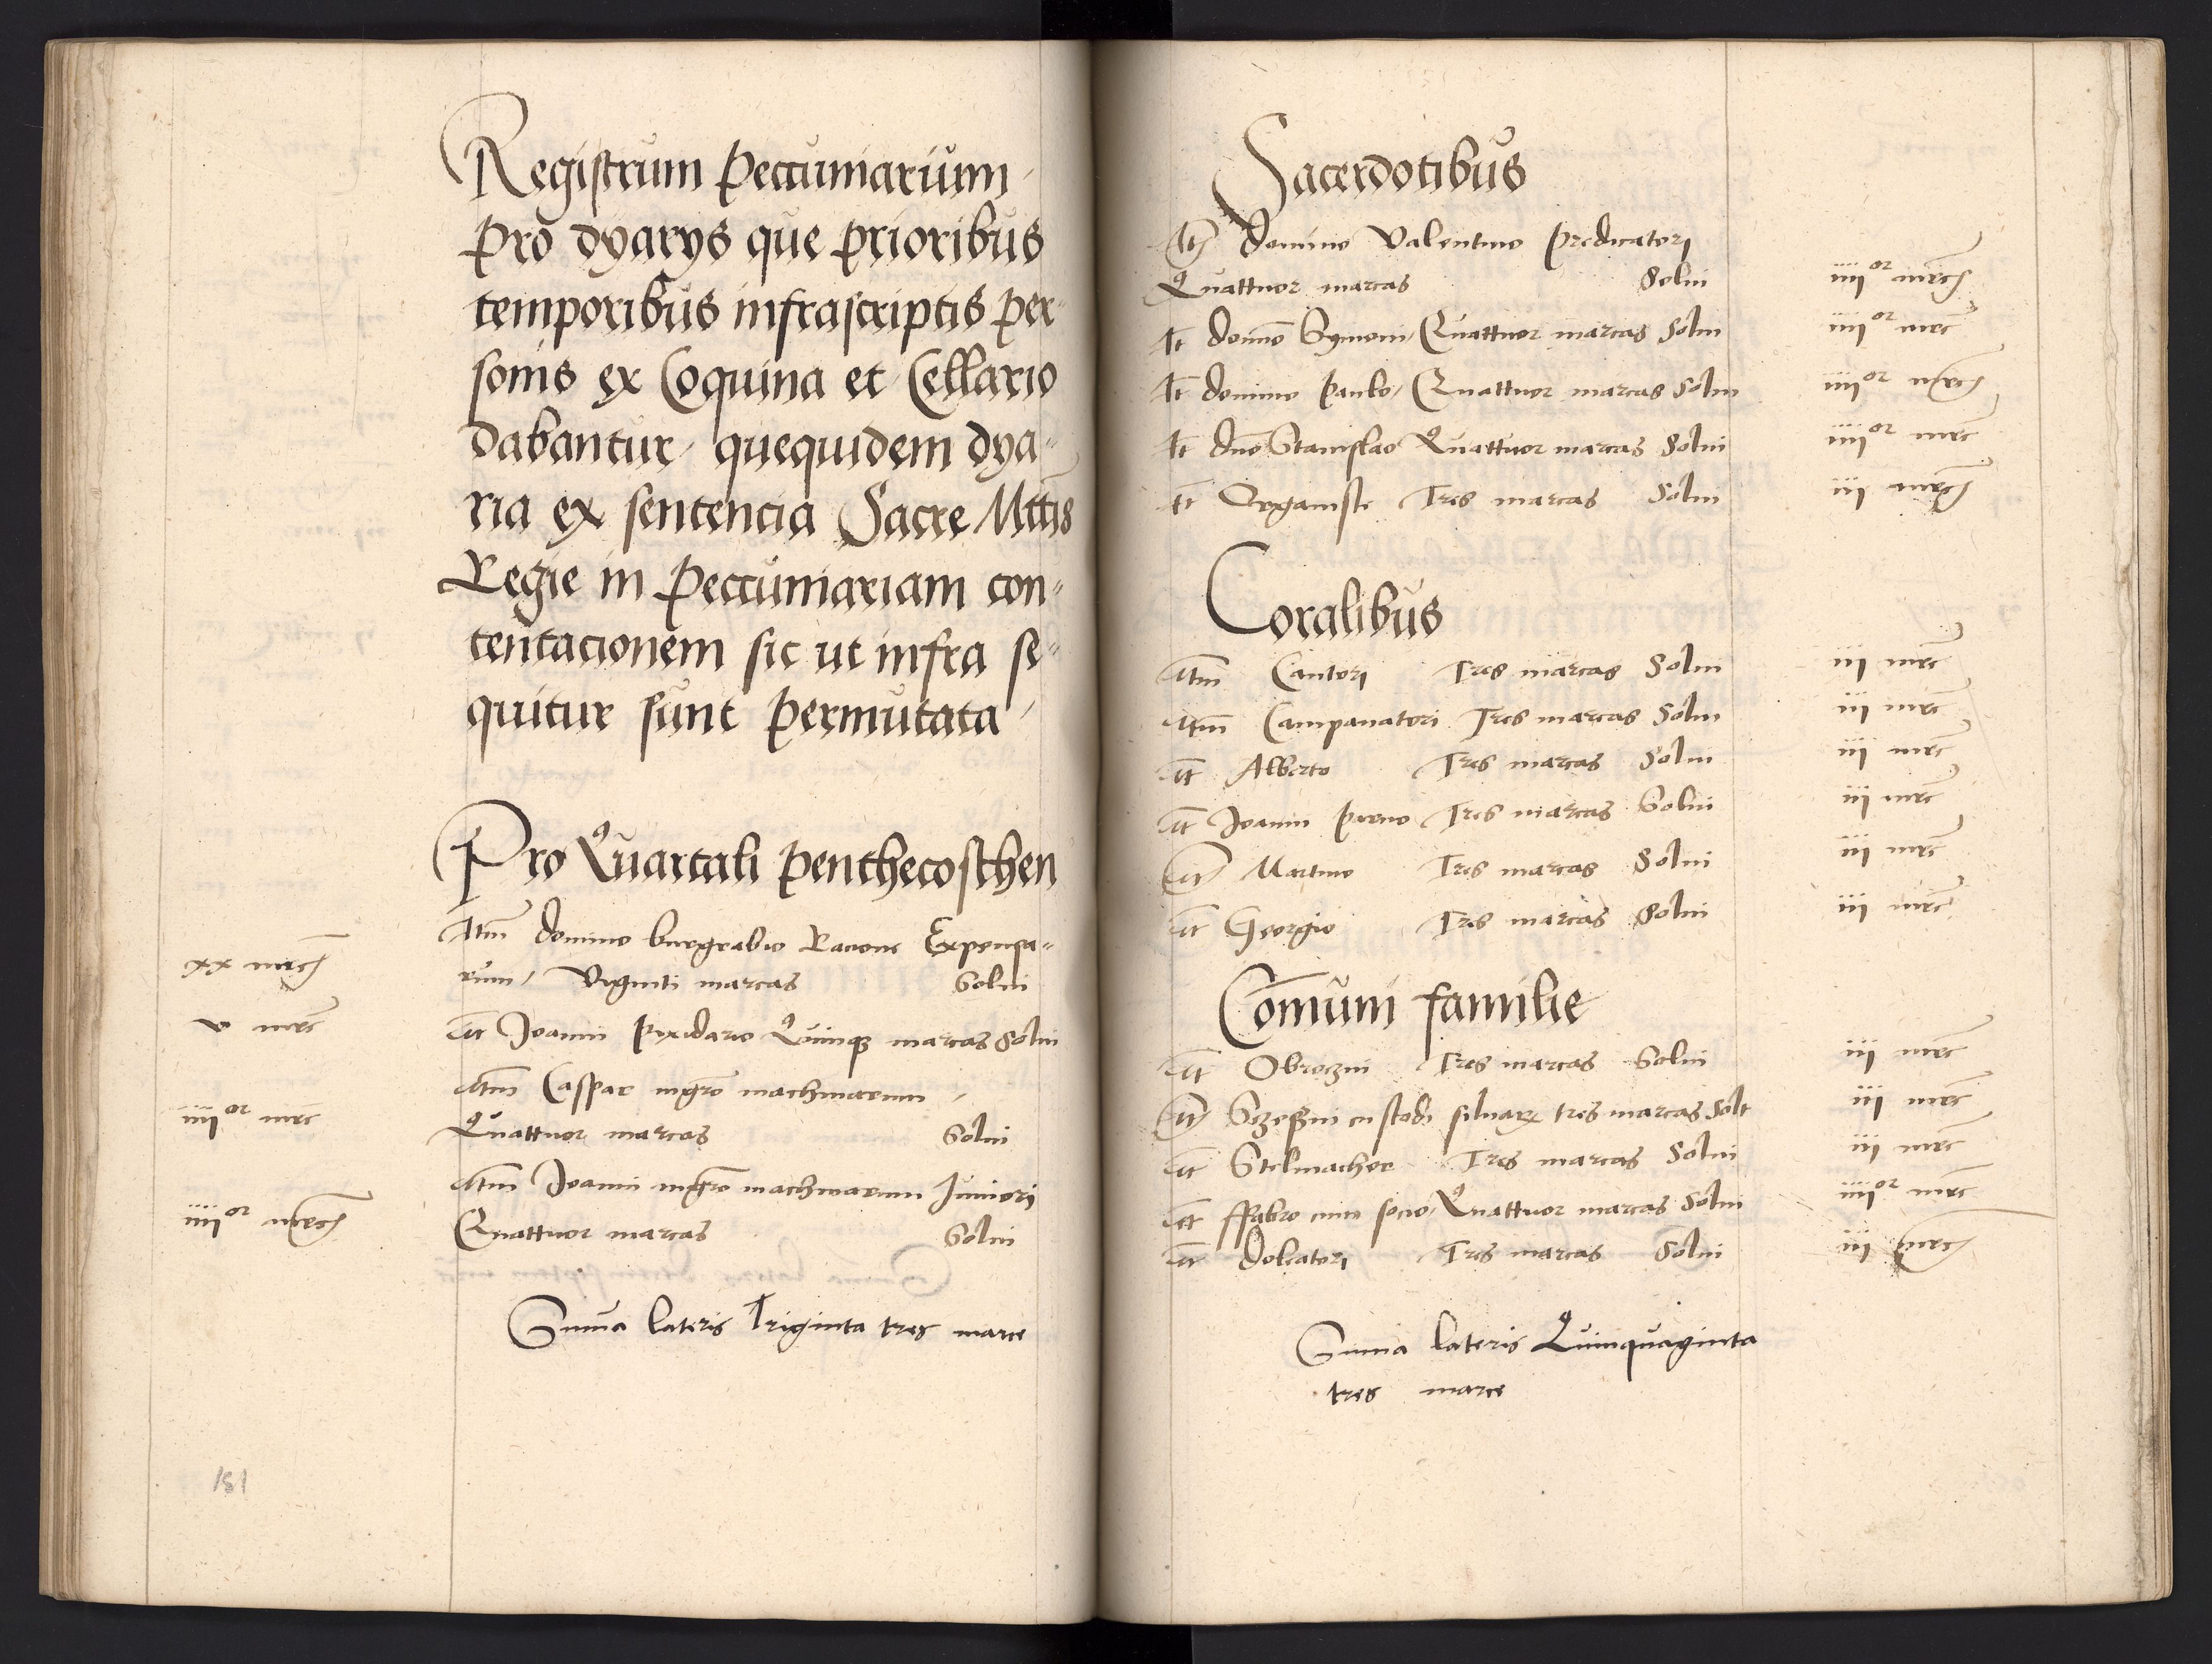 Registrum peccuniarium
pro dyarys que prioribus
temporibus infrascriptis per-
sonis ex Coquina et Cellario
dabantur, quequidem dya-
ria ex sentencia Sacre Mttis
Regie in peccuniariam con-
tentacionem sic ut infra se-
quitur sunt permutata
Pro Quartali penthecosthen
Itm domino burgrabio Racione Expensa-
xx mrc rum, viginti marcas Solui
v mrc It Joanni pixidario Quinq marcas Solui
Itm Caspar mgro machinarum,
iiii or mrc Quattuor marcas Solui
Itm Joanni mgro machinarum Juniori
iiii or mrc Quattuor marcas Solui
Summa lateris Triginta tres marce
181
Sacerdotibus
It domino Valentino predicatori
Quattuor marcas Solui iiii or mrc
It domno Symoni, Quattuor marcas Solui iiii or mrc
It domino paulo, Quattuor marcas Solui iiii or mrc
It dno Stanislao Quattuor marcas Solui iiii or mrc
It Organiste Tres marcas Solui iii mrc
Coralibus
Itm Cantori Tres marcas Solui iii mrc
Itm Campanatori Tres marcas Solui iii mrc
It Alberto Tres marcas Solui iii mrc
It Joanni paruo Tres marcas Solui iii mrc
It Martino Tres marcas Solui iii mrc
It Georgio Tres marcas Solui iii mrc
Comuni familie
It Obroczni Tres marcas Solui iii mrc
It custodi siluar tres marcas Solt iii mrc
It Stelmacher Tres marcas Solui iii mrc
It ffabro cum socio, Quattuor marcas Solui iiii or mrc
It doleatori Tres marcas Solui iii mrc
Summa lateris Quinquaginta
tres marce